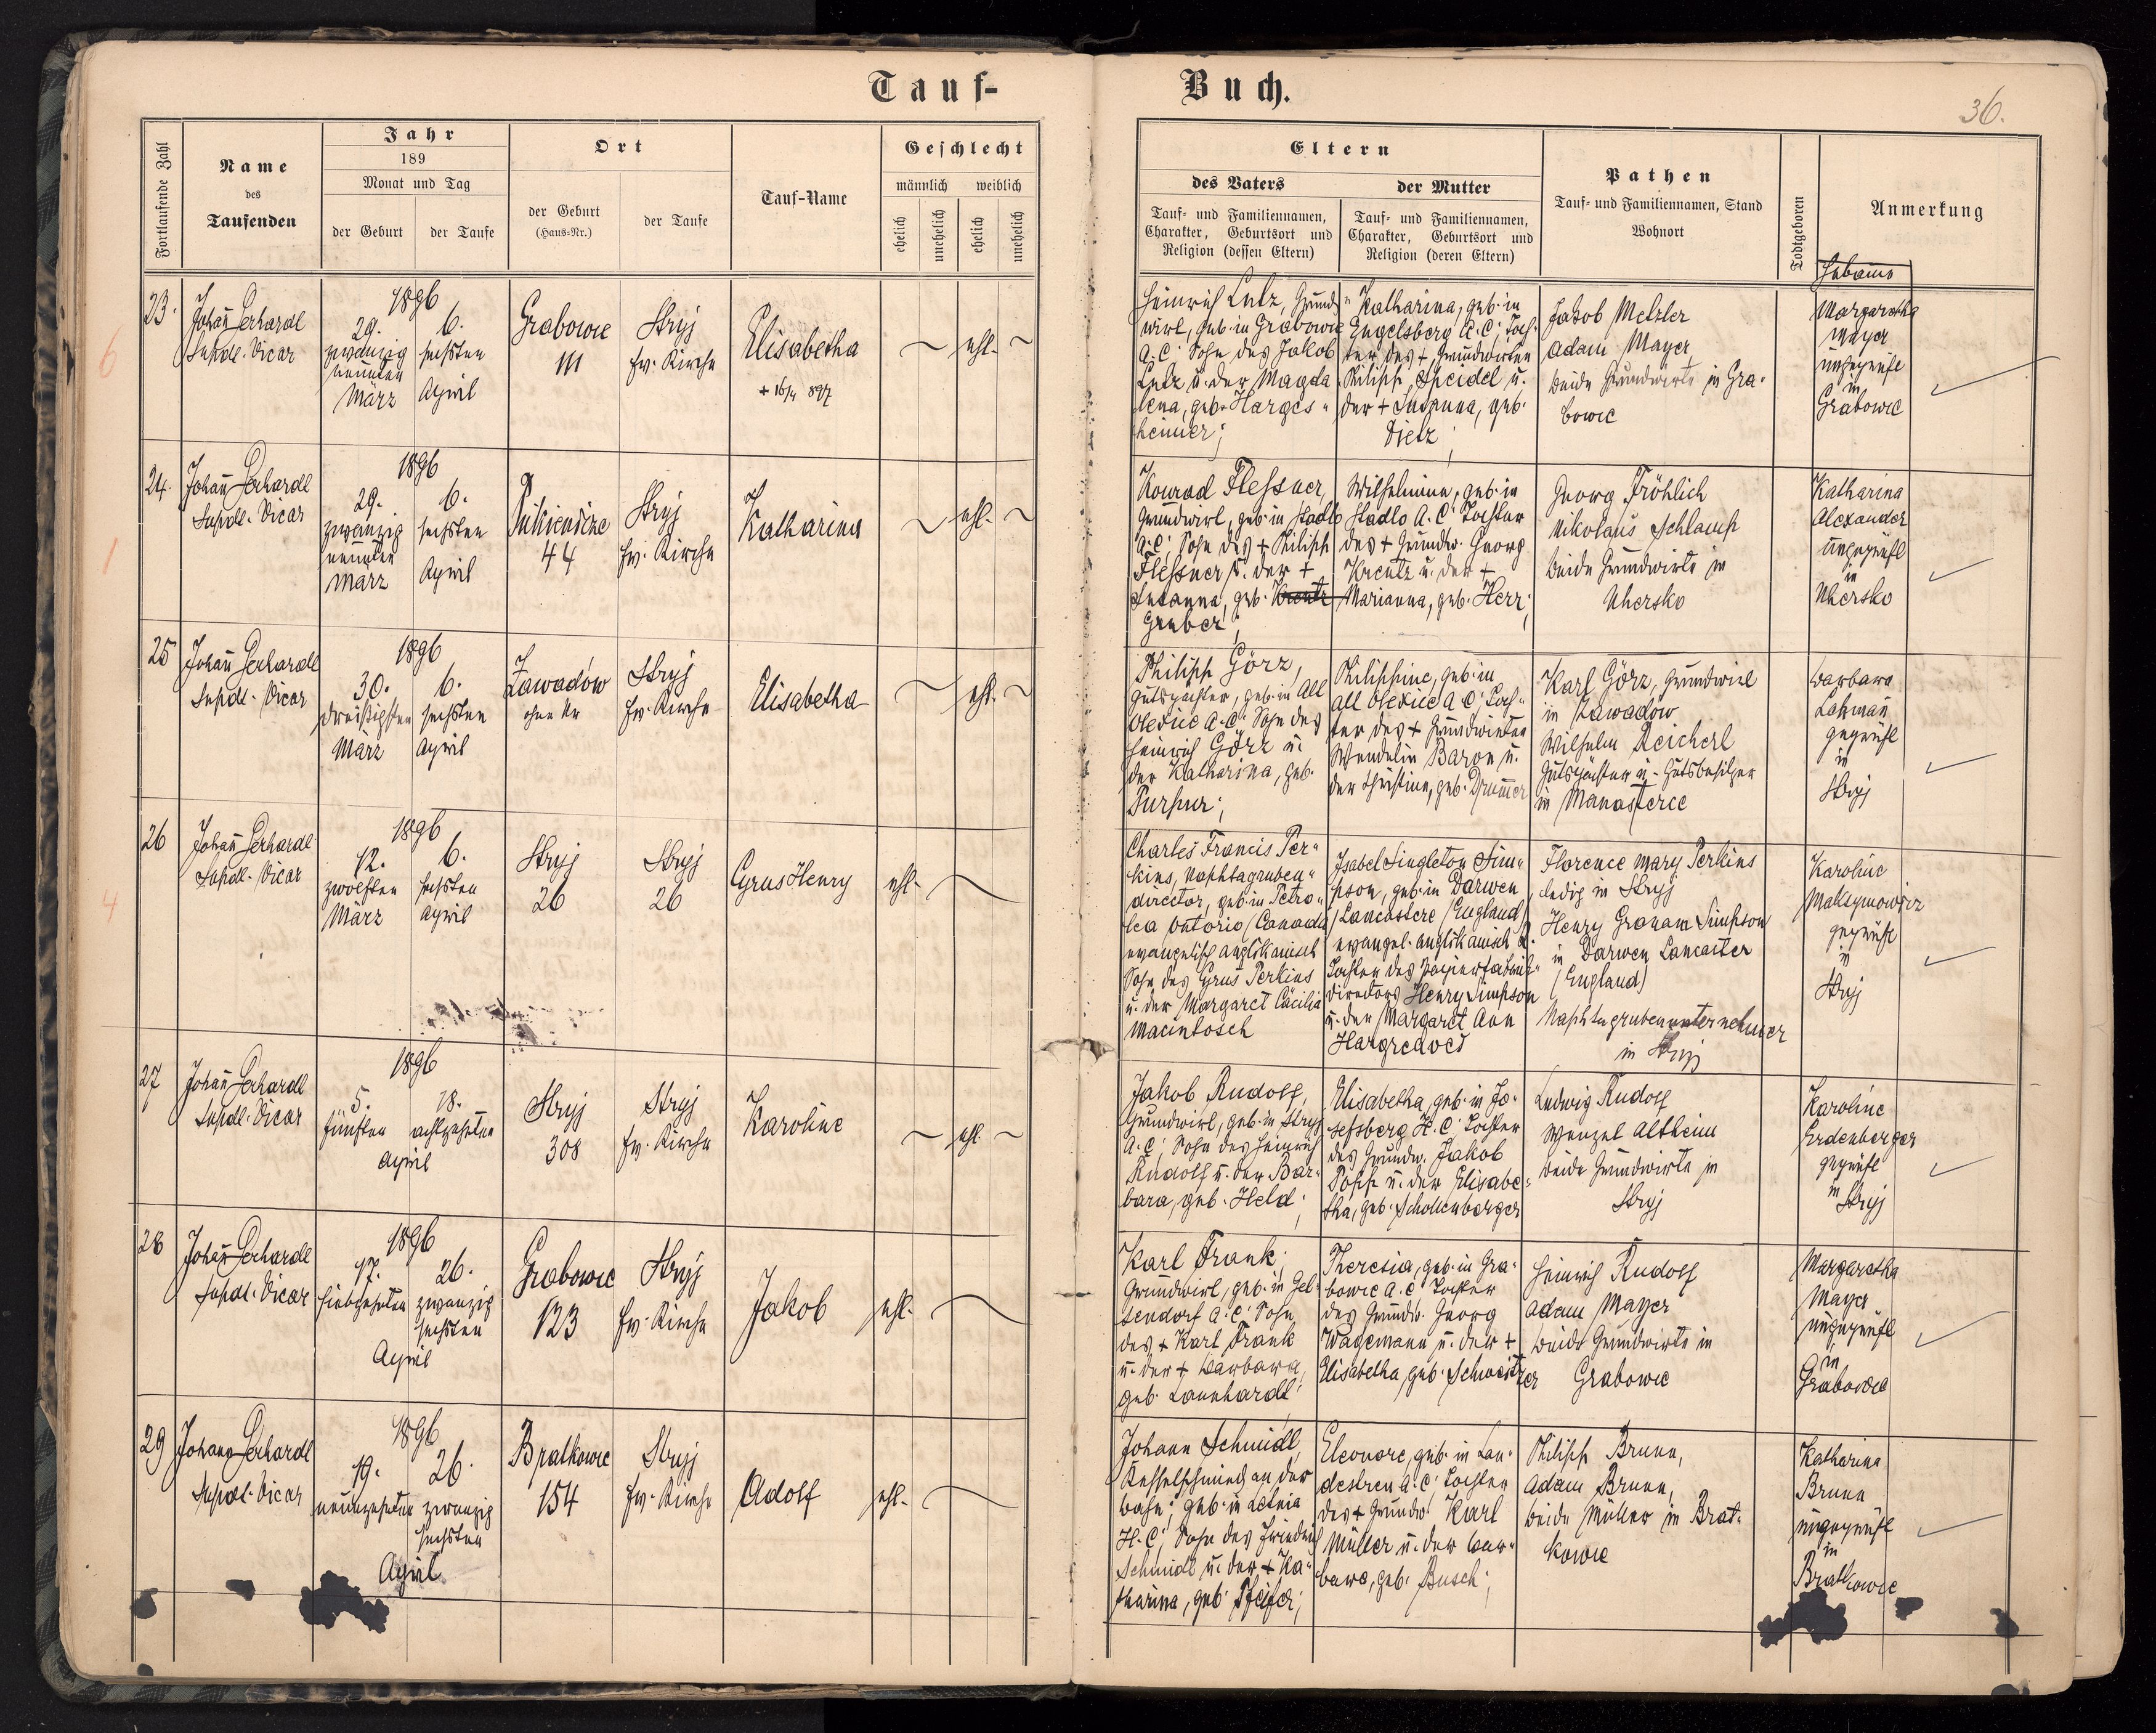 Tauf-
Buch.
36.
Fortlaufende Zahl
Name
des
Taufenden
Jahr
189
Monat und Tag
der Geburt
der Taufe
Ort
der Geburt
(Haus-Nr.)
der Taufe
Tauf-Name
Geschlecht
männlich
weiblich
ehelich
unehelich
ehelich
unehelich
Eltern
des Vaters
Tauf- und Familiennamen,
Charakter, Geburtsort und
Religion (dessen Eltern)
der Mutter
Tauf- und Familiennamen,
Charakter, Geburtsort und
Religion (deren Eltern)
Pathen
Tauf- und Familiennamen, Stand
Wohnort
Todtgeboren
Anmerkung
Hebamme
6
23.
Johann Gerhardt
Supdl. Vicar
1896
29.
zwanzig
neunten
März
6.
sechsten
April
Grabowce
111
Stryj
ev. Kirche
Elisabetha
+ 16/4 897
ehl.
Heinrich Lutz, Grund-
wirt, geb. in Grabowce
A. C. Sohn des Jakob
Lutz u. der Magda
lena, geb. Harges-
heimer;
Katharina, geb. in
Engelsberg A. C. Toch-
ter des + Grundwirten
Philipp Speidel u.
der + Susanna, geb.
Dietz;
Jakob Metzler
Adam Mayer
beide Grundwirte in Gra-
bowce
Margaretha
Mayer
ungeprüft
in
Grabowce
1
24.
Johann Gerhardt
Supdl. Vicar
1896
29.
zwanzig
neunten
März
6.
sechsten
April
44
Stryj
ev. Kirche
Katharina
ehl.
Konrad Flessner,
Grundwirt, geb. in Stadlo
A. C. Sohn des + Philipp
Flessner u. der +
Susanna, geb. Kreutz
Gruber;
Wilhelmine, geb. in
Stadlo A. C. Tochter
des + Grundw. Georg
Kreutz u. der +
Marianna, geb. Herr;
Georg Fröhlich
Nikolaus Schlamp
beide Grundwirte in
Uhersko
Katharina
Alexander
ungeprüft
in
Uhersko
25
Johann Gerhardt
Supdl. Vicar
1896
30.
dreißigsten
März
6.
sechsten
April
Zawadów
ohne Nr
Stryj
ev. Kirche
Elisabetha
ehl.
Philipp Görz,
Gutspächter, geb. in Alt
Oleksic A. C. Sohn des
Heinrich Görz u.
der Katharina, geb.
Purpur;
Philippine, geb. in
Alt Oleksic A. C. Toch-
ter des + Grundwirten
Wendelin Baron u.
der Christine, geb. Drummer
Karl Görz, Grundwirt
in Zawadow
Wilhelm Reichert
Gutspächter u. Gutsbesitzer
in Manasterce
Barbara
Lahmann
geprüft
in
Stryj
4
26
Johann Gerhardt
Supdl. Vicar
1896
12.
zwölften
März
6.
sechsten
April
Stryj
26
Stryj
26
Cyrus Henry
ehl.
Charles Francis Per-
kins, Naphtagruben-
director, geb. in Petro-
lea Ontario/Canada
evangelisch anglikanisch
Sohn des Cyrus Perkins
u. der Margaret Cäcilia
Macintosch
Isabel Singleton Sim-
pson, geb. in Darwen
/Lancastere/England/
evangel. anglikanisch
Tochter des Papierfabriks-
directors Henry Simpson
u. der Margaret Ann
Hargreaves
Florence Mary Perkins
ledig in Stryj
Henry Graham Simpson
in Darwen Lancaster
(England)
Naphtagrubenunternehmer
in Stryj
Karoline
Maksymowicz
geprüft
in
Stryj
27
Johann Gerhardt
Supdl. Vicar
1896
5.
fünften
18.
achtzehnten
April
Stryj
308
Stryj
ev. Kirche
Karoline
ehl.
Jakob Rudolf,
Grundwirt, geb. in Stryj
A. C. Sohn des Heinrich
Rudolf u. der Bar-
bara, geb. Held;
Elisabetha, geb. in Jo-
sefsberg H. C. Tochter
des Grundw. Jakob
Popp u. der Elisabe-
tha, geb. Schollenberger
Ludwig Rudolf
Wenzel Altheim
beide Grundwirte in
Stryj
Karoline
Erdenberger
geprüft
in
Stryj
28
Johann Gerhardt
Supdl. Vicar
1896
17.
siebzehnten
26.
zwanzig
sechsten
April
Grabowce
123
Stryj
ev. Kirche
Jakob
ehl.
Karl Frank,
Grundwirt, geb. in Gel-
sendorf A. C. Sohn
des + Karl Frank
u. der + Barbara,
geb. Launhardt
Theresia, geb. in Gra-
bowce A. C. Tochter
des Grundw. Georg
Wagemann u. der +
Elisabetha, geb. Schweitzer
Heinrich Rudolf
Adam Mayer
beide Grundwirte in
Grabowce
Margaretha
Mayer
ungeprüft
in
Grabowce
29
Johann Gerhardt
Supdl. Vicar
1896
19.
neunzehnten
26.
zwanzig
sechsten
April
Bratkowce
154
Stryj
ev. Kirche
Adolf
ehl.
Johann Schmidt,
Kesselschmied an der
Bahn; geb. in Letnia
H. C. Sohn des Friedrich
Schmidt u. der + Ka-
tharina, geb. Pfeifer;
Eleonore, geb. in Lan-
destreu A. C. Tochter
des + Grundw. Karl
Müller u. der Bar-
bara, geb. Busch;
Philipp Brunn,
Adam Brunn,
beide Müller in Brat-
kowce
Katharina
Brunn
ungeprüft
in
Bratkowce